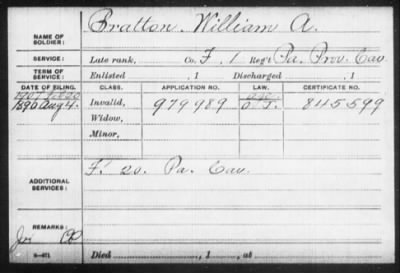 NAME OF SOLDIER: Bratton, William A.
SERVICE: Late rank, Co. F. 1 Reg't Pa. Prov. Cav
TERM OF SERVICE: Enlisted , 1 Discharged , 1
DATE OF FILING. CLASS. APPLICATION NO. LAW. CERTIFICATE NO.
1890 Aug 4. Invalid, 979989 845599
Widow,
Minor,
ADDITIONAL SERVICES: F. 20. Pa. Cav.
REMARKS:
Died , 1 , at